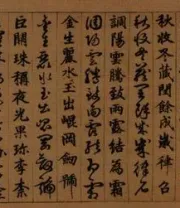 秋收冬藏閏餘成歲律呂
秋收冬藏閏餘成歲律呂
調陽雲騰致雨露結為霜
調陽雲騰致雨露結為霜
金生麗水玉出崐岡劒號
金生麗水玉出崐岡劒號
巨闕珠稱夜光果珍李柰